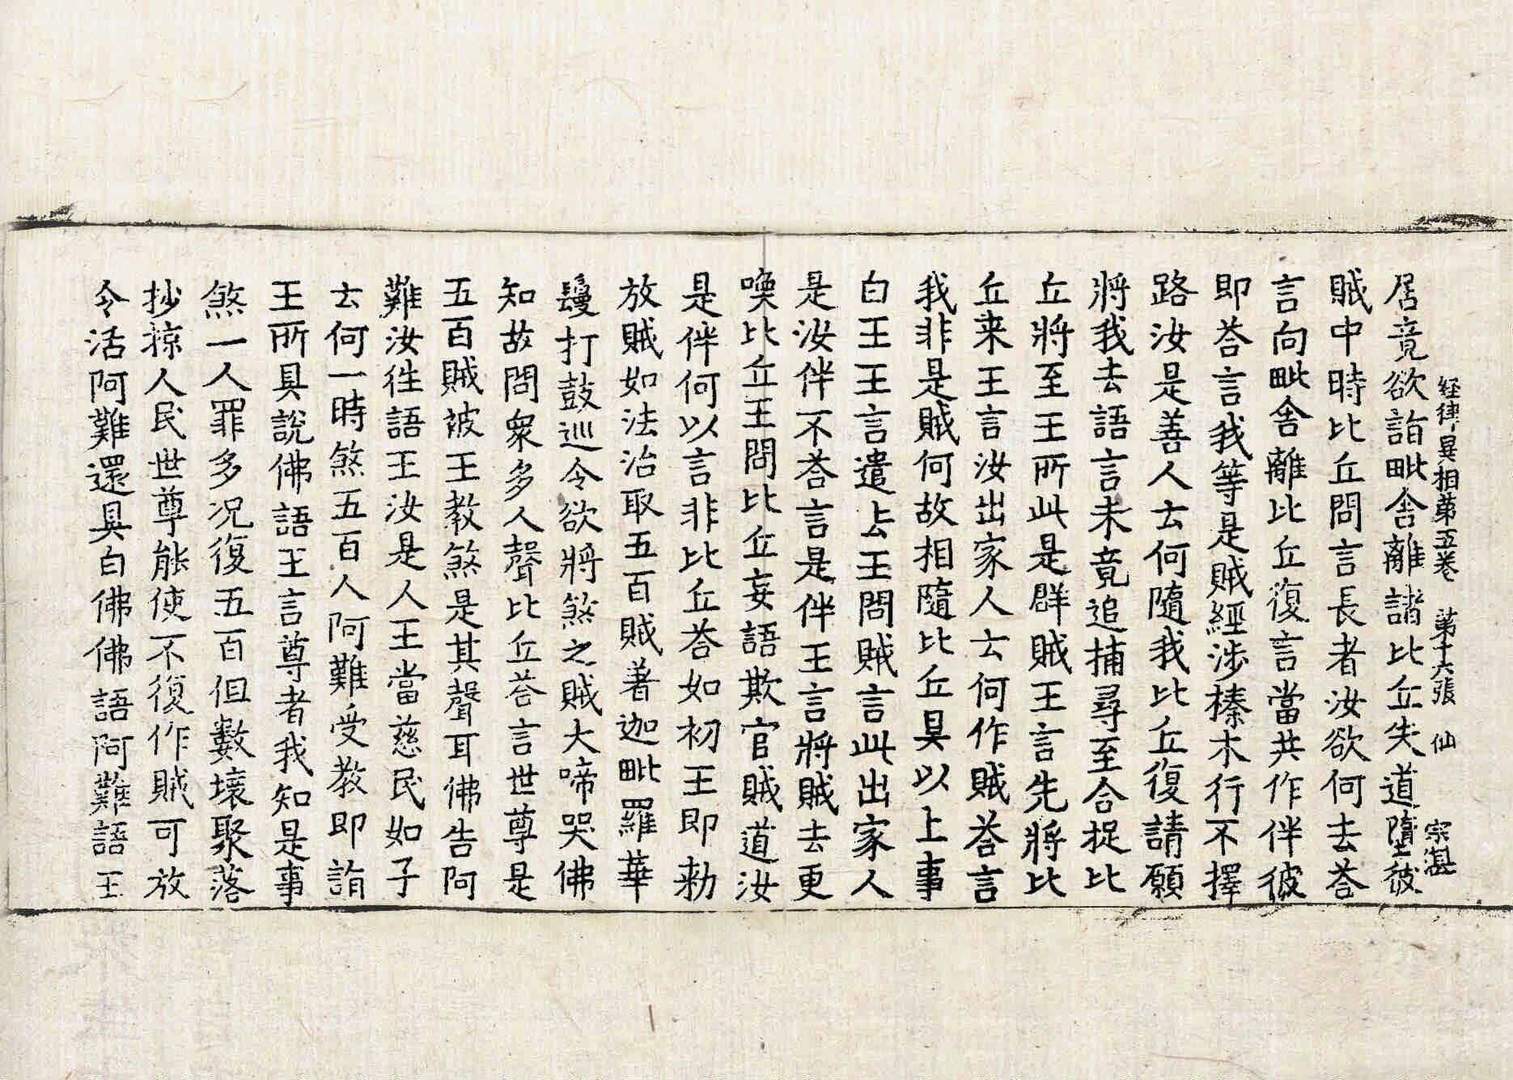 経律異相苐五巻　苐十六張　仙　宗湛
居竟欲詣毗舎離諸比丘失道墮彼
賊中時比丘問言長者汝欲何去荅
言向毗舎離比丘復言當共作伴彼
即荅言我等是賊經涉榛木行不擇
路汝是善人云何隨我比丘復請願
將我去語言未竟追捕尋至合捉比
丘將至王所此是群賊王言先將比
丘来王言汝出家人云何作賊荅言
我非是賊何故相隨比丘具以上事
白王王言遣去王問賊言此出家人
是汝伴不荅言是伴王言將賊去更
喚比丘王問比丘妄語欺官賊道汝
是伴何以言非比丘荅如初王即勑
放賊如法治取五百賊著迦毗羅華
鬘打鼓巡令欲將煞之賊大啼哭佛
知故問衆多人聲比丘荅言世尊是
五百賊被王教煞是其聲耳佛告阿
難汝往語王汝是人王當慈民如子
云何一時煞五百人阿難受教即詣
王所具說佛語王言尊者我知是事
煞一人罪多况復五百但數壞聚落
抄掠人民世尊能使不復作賊可放
令活阿難還具白佛佛語阿難語王